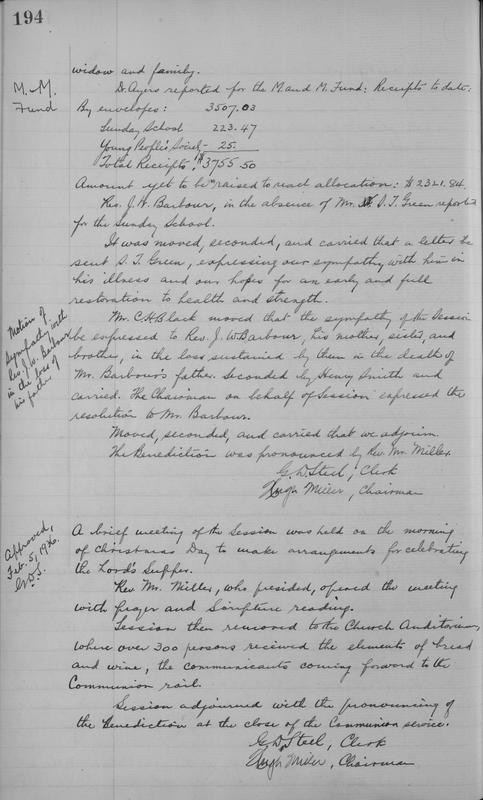 194
widow and family.
M. M.
Fund
Dr. Ayers reported for the M. and M. Fund: Receipts to date:
By envelopes: 3507.03
Sunday School 223.47
Young People's Society 25.
Total Receipts, $3755.50
Amount yet to be raised to reach allocation: $2321.84.
Rev. J. W. Barbour, in the absence of Mr. S. T. Green reported
for the Sunday School.
It was moved, seconded, and carried that a letter be
sent S. T. Green, expressing our sympathy with him in
his illness and our hopes for an early and full
restoration to health and strength.
Motion of
Sympathy with
Rev. J. W. Barbour
in the loss of
his father
Mr. C. H. Black moved that the sympathy of the Session
be expressed to Rev. J. W. Barbour, his mother, sister, and
brother, in the loss sustained by them in the death of
Mr. Barbour's father. Seconded by Henry Smith and
carried. The Chairman on behalf of Session expressed the
resolution to Mr. Barbour.
Moved, seconded, and carried that we adjourn.
The Benediction was pronounced by Rev. Mr. Miller.
G. D. Steel, Clerk
Hugh Miller, Chairman
Approved,
Feb. 5, 1926.
G.D.S.
A brief meeting of the Session was held on the morning
of Christmas Day to make arrangements for celebrating
the Lord's Supper.
Rev. Mr. Miller, who presided, opened the meeting
with prayer and Scripture reading.
Session then removed to the Church Auditorium,
where over 300 persons received the elements of bread
and wine, the communicants coming forward to the
Communion rail.
Session adjourned with the pronouncing of
the Benediction at the close of the Communion service.
G. D. Steel, Clerk
Hugh Miller, Chairman